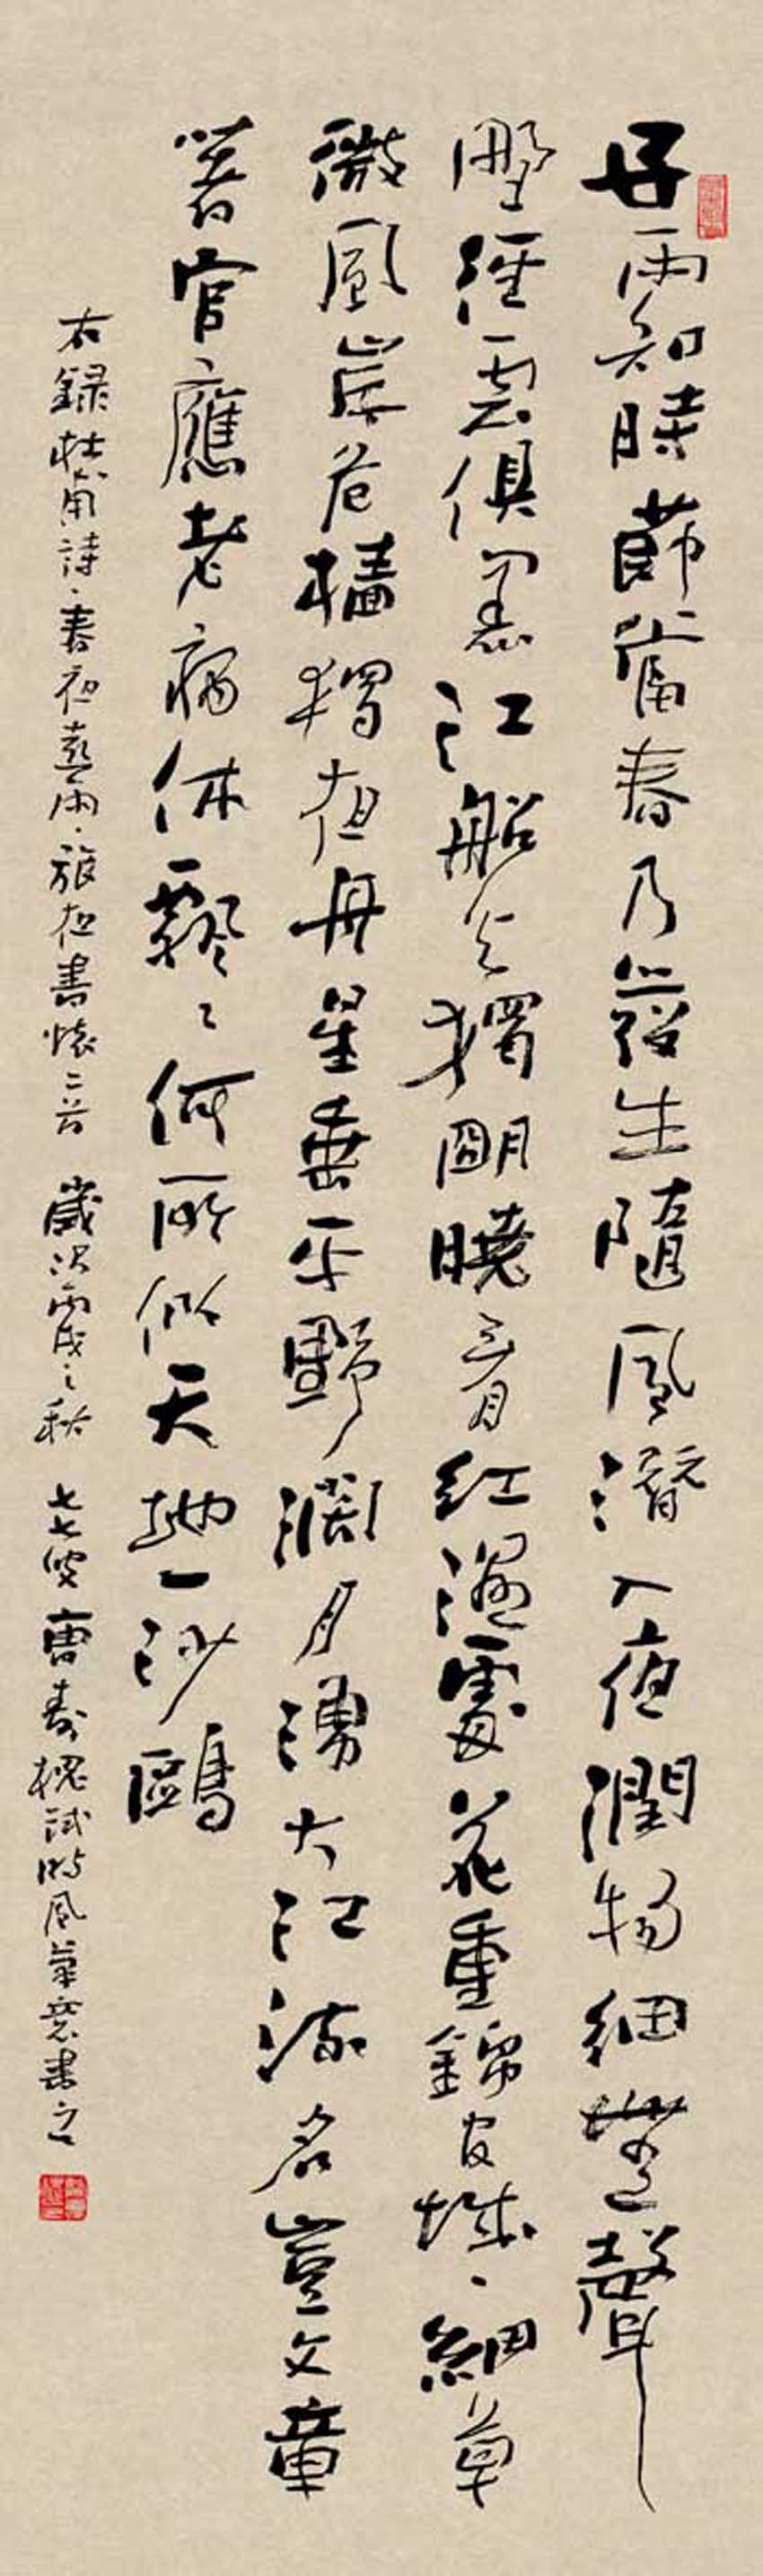 好雨知時節當春乃發生隨風潛入夜潤物細無聲
野徑雲俱黑江船火獨明曉看紅濕處花重錦官城、細草
微風岸危檣獨夜舟星垂平野闊月湧大江流名豈文章
著官應老病休飄〻何所似天地一沙鷗
右錄杜甫詩、春夜喜雨、旅夜書懷二首 歲次丙戌之秋 七七叟曹壽槐試時風筆意書之